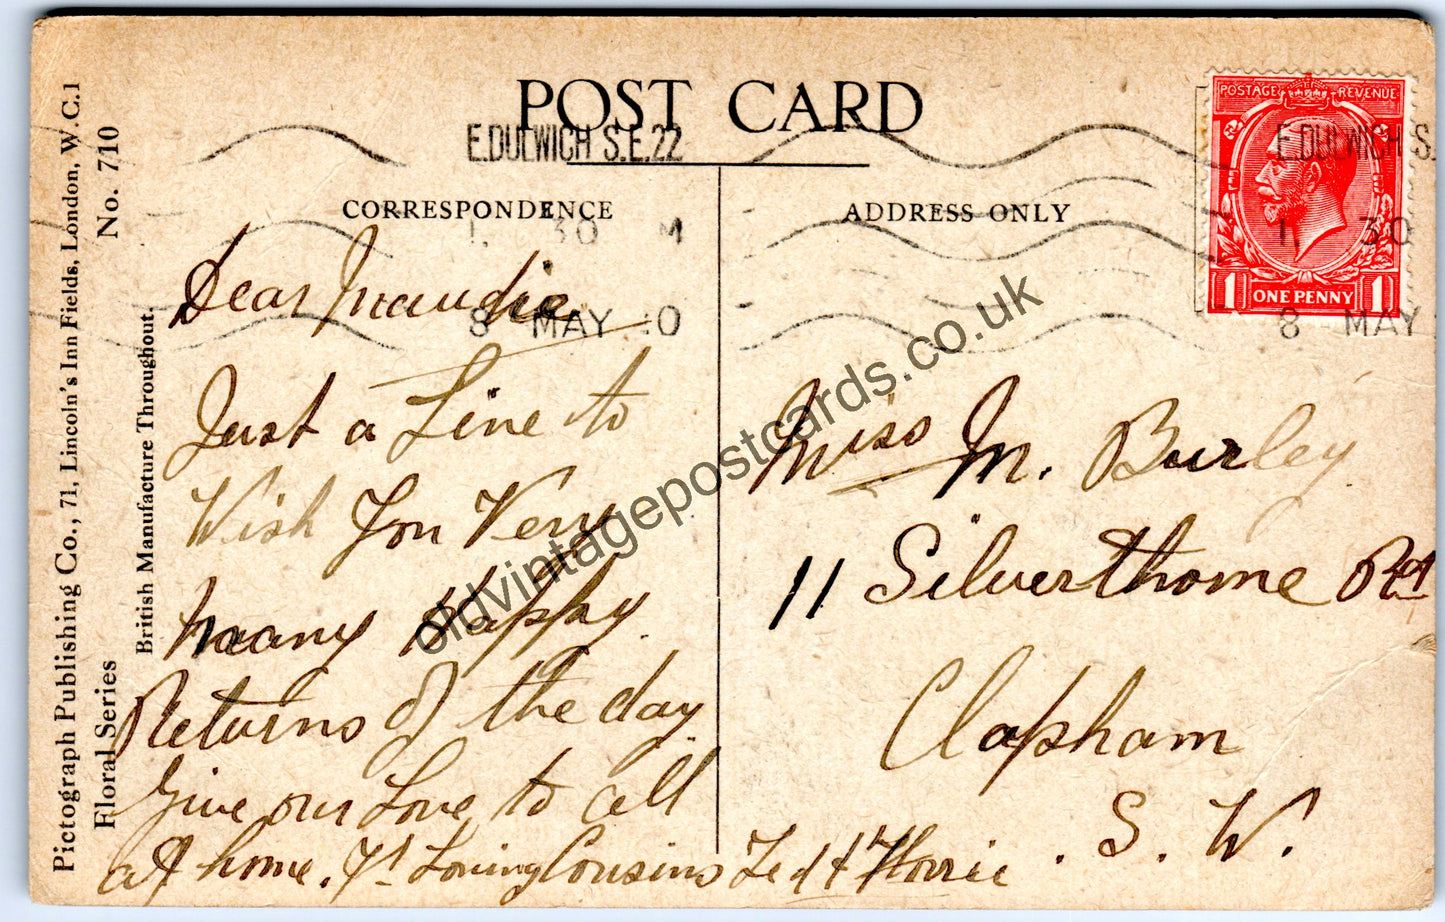 POST CARD
E.DULWICH S.E.22
1. 30 M
8 MAY 20
CORRESPONDENCE
ADDRESS ONLY
POSTAGE REVENUE
1 ONE PENNY 1
E.DULWICH S.
1. 30
8 MAY
Pictograph Publishing Co., 71, Lincoln's Inn Fields, London, W.C.1
Floral Series
No. 710
British Manufacture Throughout.
Dear Maudie
Just a Line to
Wish You Very
Many Happy
Returns of the day
Give our Love to all
at home. Yr Loving Cousins Ted & Florrie.
Miss M. Burley
11 Silverthorne Rd
Clapham
S. W.
oldvintagepostcards.co.uk